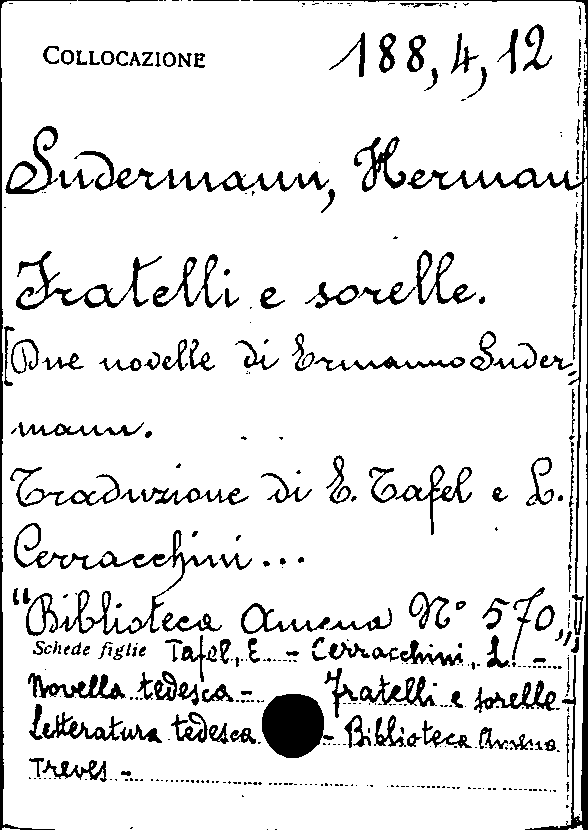 COLLOCAZIONE 188,4,12
Sudermann, Herman
Fratelli e sorelle.
[Due novelle di Ermanno Suder„
mann.
Traduzione di E. Tafel e L.
Cerracchini...
"Biblioteca Amena N° 570„]
Schede figlie Tafel, E. - Cerracchini, L. -
Novella tedesca - Fratelli e sorelle -
Letteratura tedesca - Biblioteca Amena
Treves -